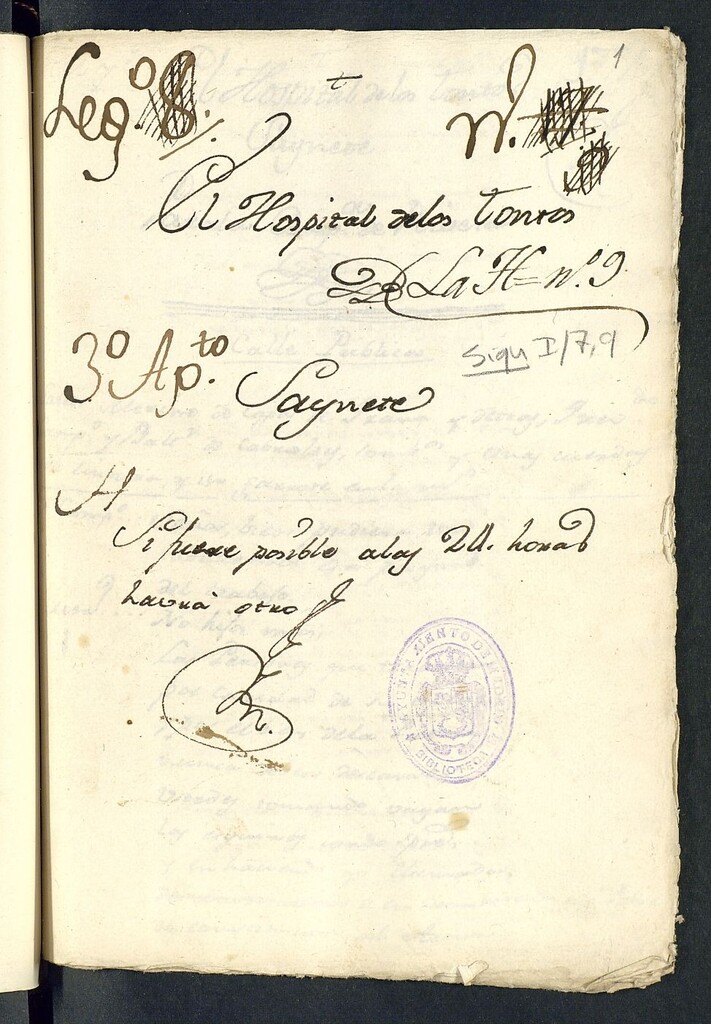 1
Leg.º 8.
N.
El Hospital de los tontos
De La H= n.º 9
3º Ap.to
Sign I/7,9
Saynete
Si fuere posible a las 24. horas
havrá otro
AYUNTAMIENTO DE MADRID
BIBLIOTECA